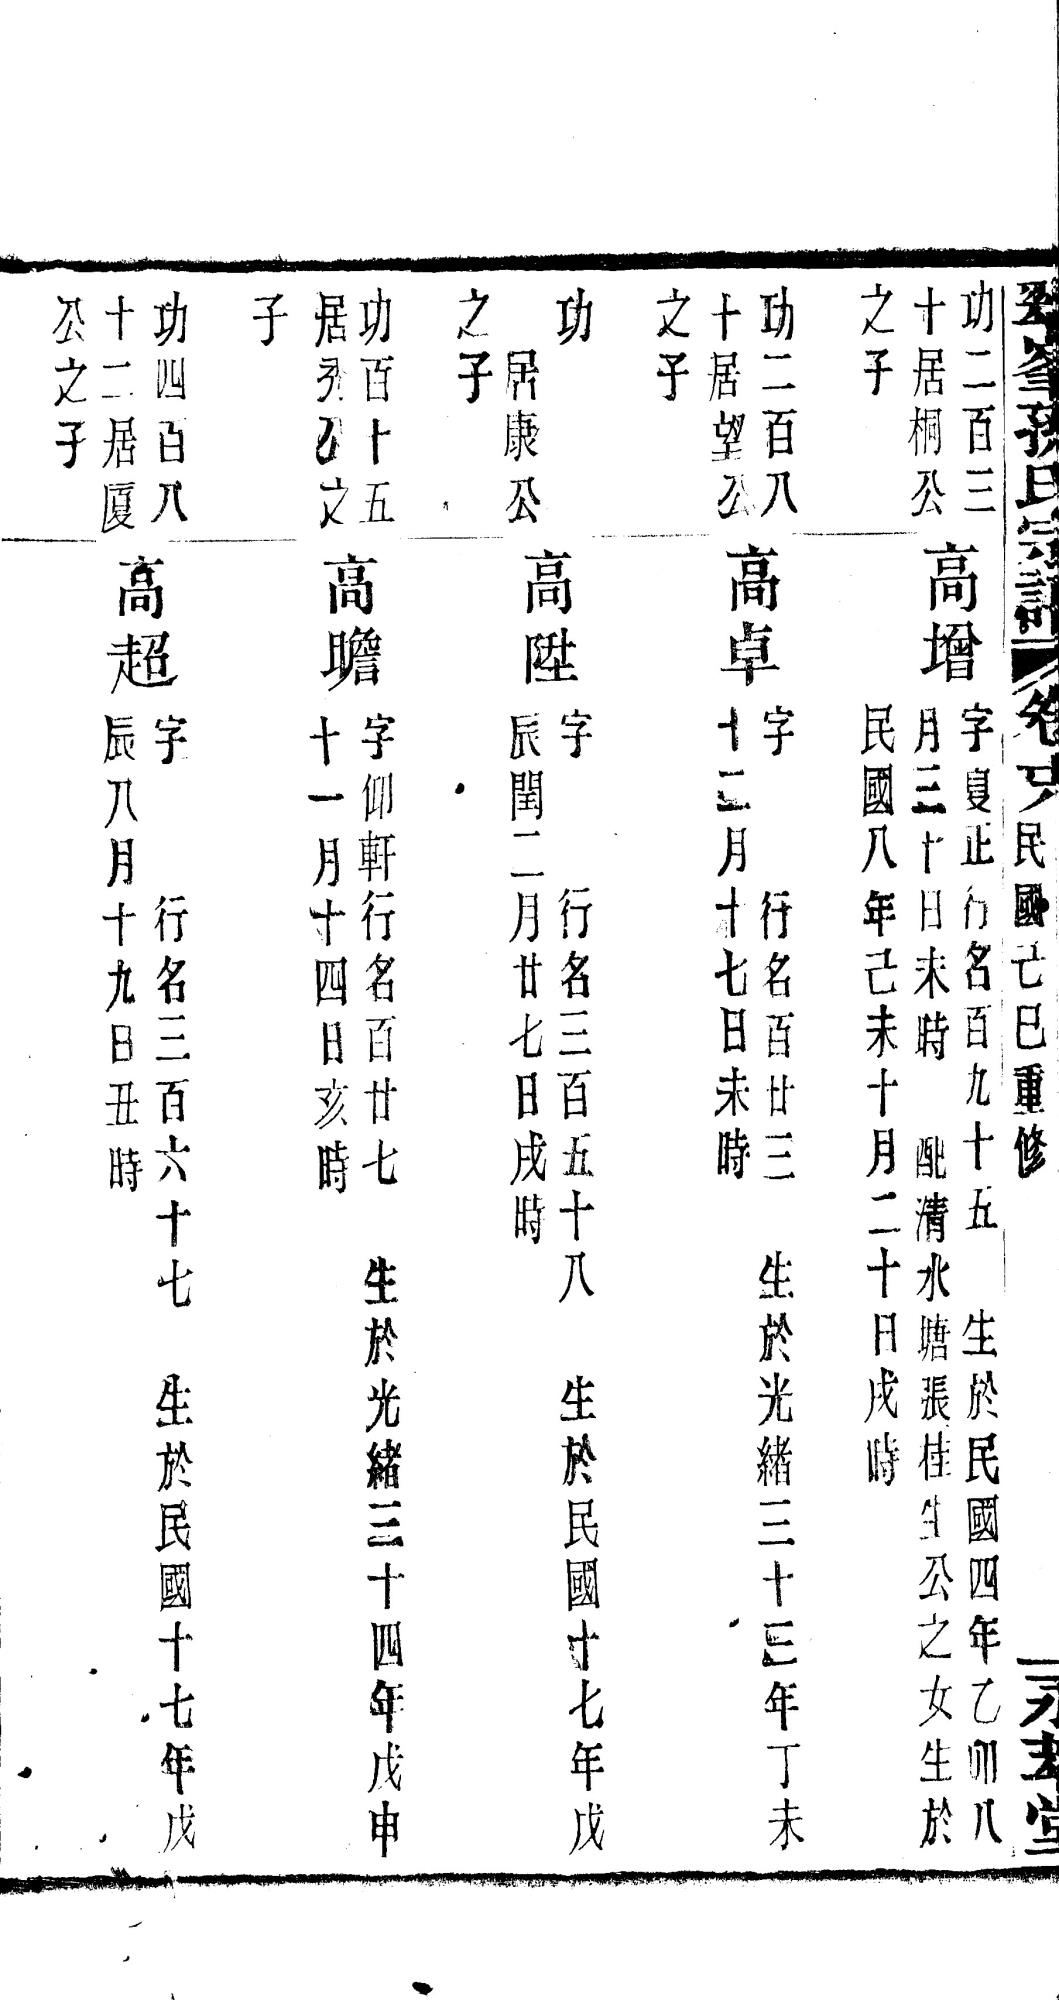 峯孫氏宗譜 卷 民國己巳重修 堂
功二百三
十居桐公
之子
高增
字夏正行名百九十五 生於民國四年乙卯八
月三十日未時 配清水塘張桂生公之女生於
民國八年己未十月二十日戌時
功二百八
十居望公
之子
高卓
字 行名百廿三 生於光緒三十三年丁未
十二月十七日未時
功
居康公
之子
高陞
字 行名三百五十八 生於民國十七年戊
辰閏二月廿七日戌時
功百十五
居秀公之
子
高瞻
字仰軒行名百廿七 生於光緒三十四年戊申
十一月十四日亥時
功四百八
十二居厦
公之子
高超
字 行名三百六十七 生於民國十七年戊
辰八月十九日丑時